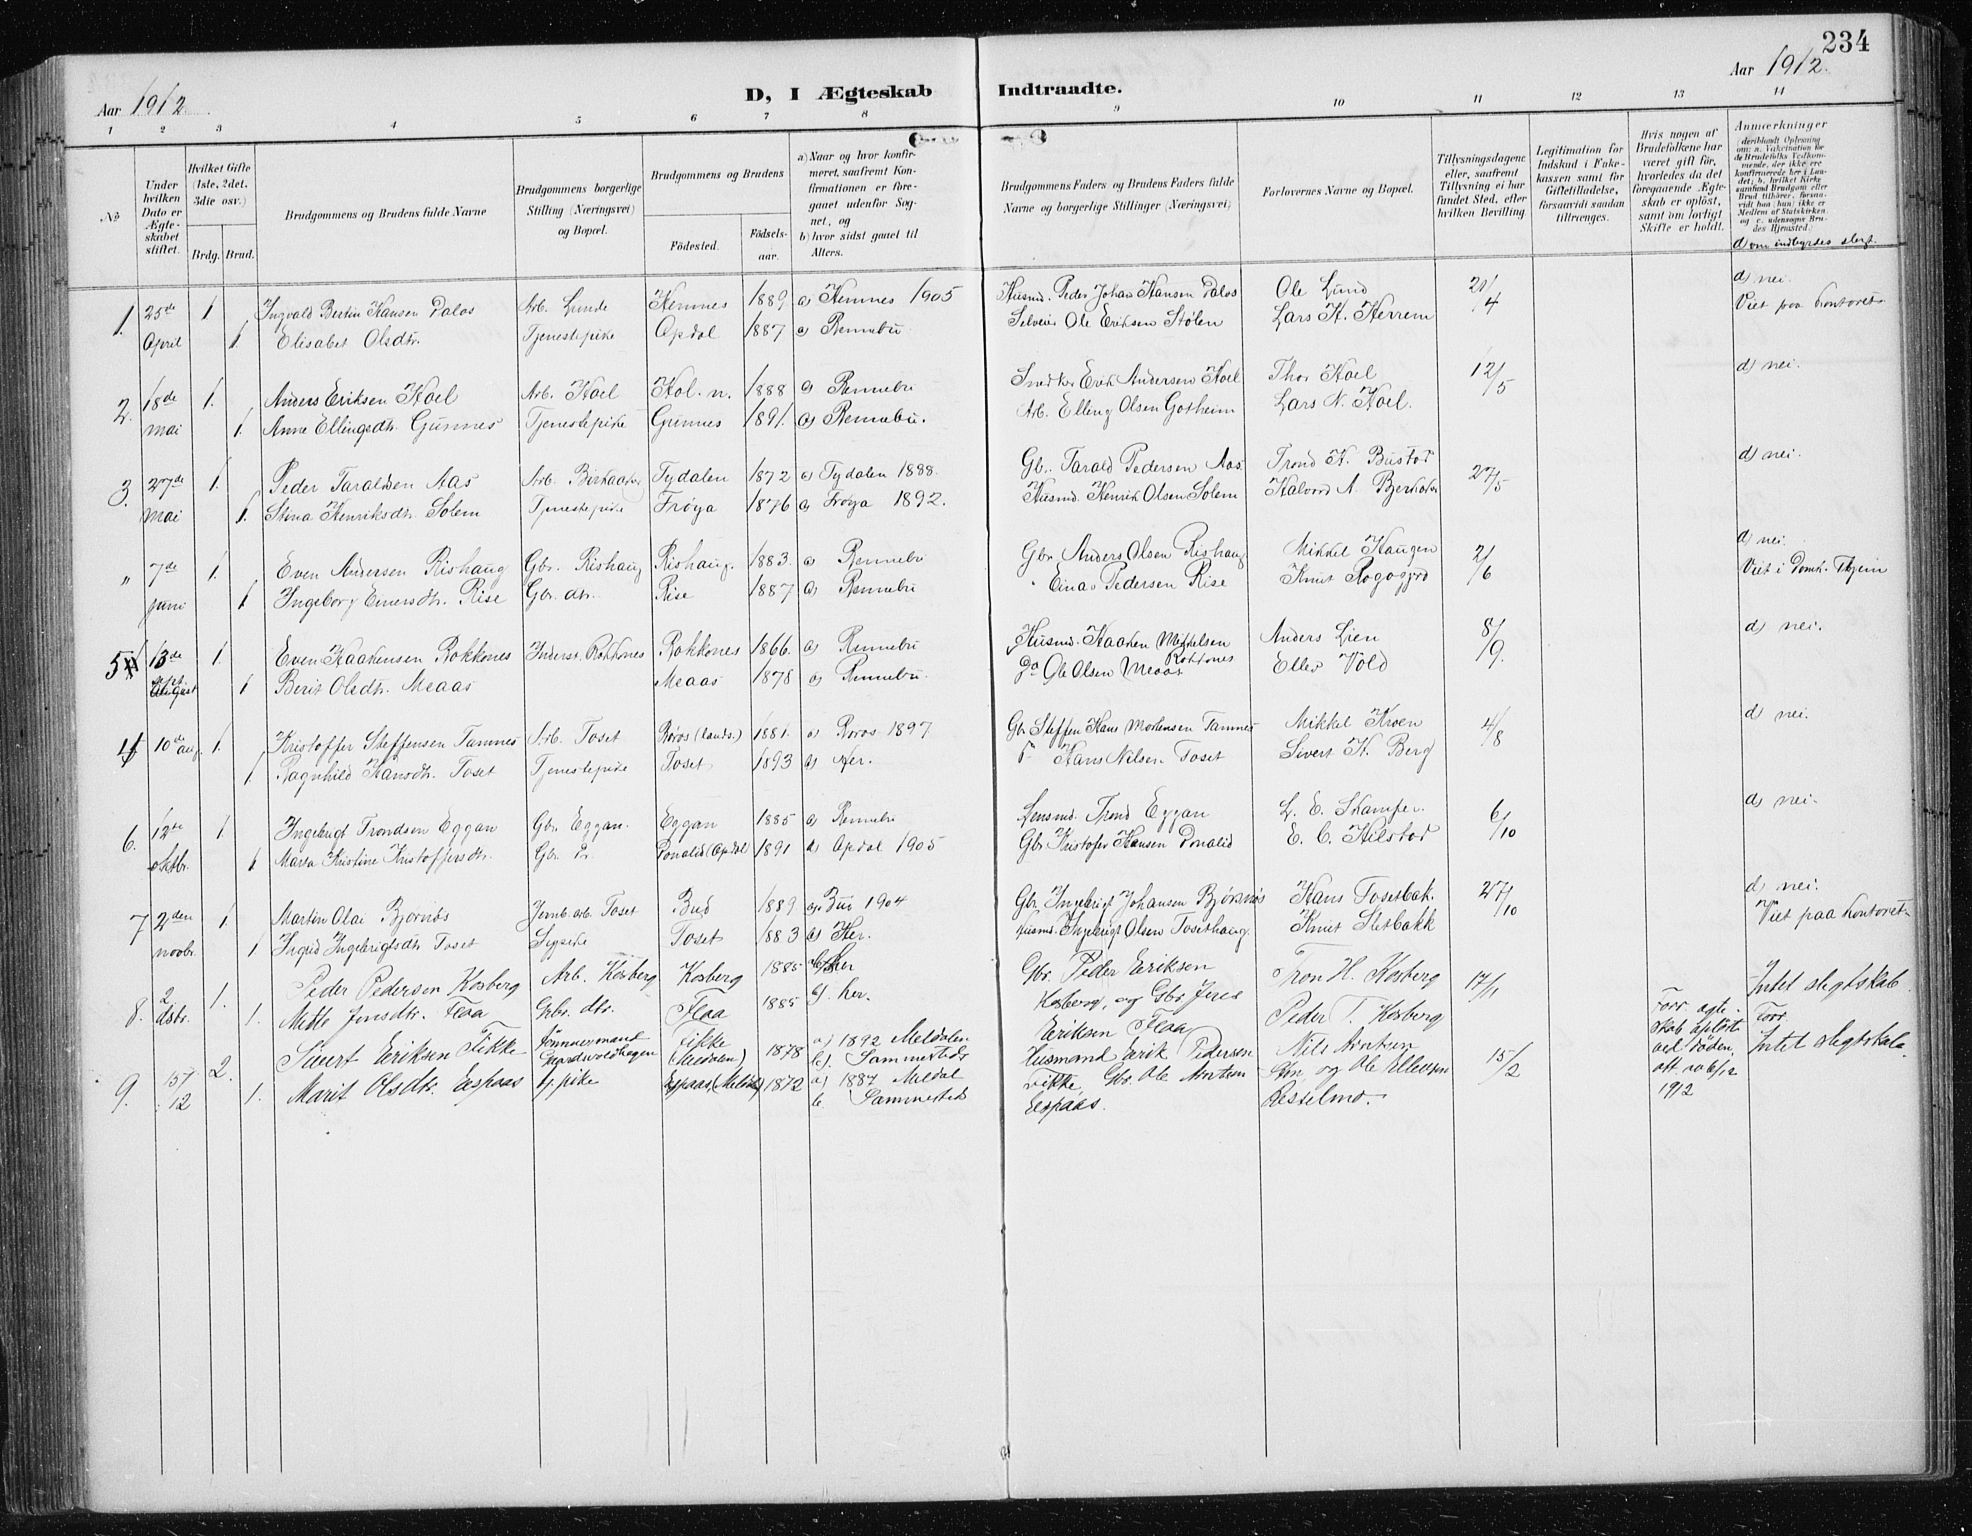 234
Aar 1912.
D, I Ægteskab Indtraadte.
Aar 1912.
1 2 3 4 5 6 7 8 9 10 11 12 13 14
No
Under hvilken Dato er Ægteskabet stiftet.
Hvilket Gifte (1ste, 2det, 3die osv.)
Brdg. Brud.
Brudgommens og Brudens fulde Navne
Brudgommens borgerlige Stilling (Næringsvei) og Bopæl.
Brudgommens og Brudens
Fødested.
Fødselsaar.
a) Naar og hvor konfirmeret, saafremt Konfirmationen er foregaaet udenfor Sognet, og
b) hvor sidst gaaet til Alters.
Brudgommens Faders og Brudens Faders fulde Navne og borgerlige Stillinger (Næringsvei)
Forlovernes Navne og Bopæl.
Tillysningsdagene eller, saafremt Tillysning ei har fundet Sted, efter hvilken Bevilling.
Legitimation for Indskud i Enkekassen samt for Giftetilladelse, forsaavidt saadan tiltrænges.
Hvis nogen af Brudefolkene har været gift før, hvorledes da det foregaaende Ægteskab er opløst, samt om lovligt Skifte er holdt.
Anmærkninger
d) om indbyrdes slegt.
1. 25de April 1 Ingvald Bertin Hansen Dalos Arb. Lunde Hemnes 1889 a) Hemnes 1905 Husmd. Peder Johan Hansen Dalos Ole Lund 21/4 d) nei.
1. Elisabet Olsdtr. Tjenestepike Opdal 1887 a) Rennebu. Selveier Ole Eriksen Stølen Lars H. Herrem Viet paa kontoret.
2. 18de mai 1. Anders Eriksen Hoel Arb. Hoel Hol. n. 1888 a) Rennebu Snedker Erik Andersen Hoel Thor Hoel 12/5 d) nei.
1. Anne Ellingsdtr. Gunnes Tjenestepike Gunnes 1891. a) Rennebu. Arb. Elling Olsen Gotheim Lars N. Hoel.
3. 27de mai 1. Peder Taraldsen Aas Arb. Birkaaker Tydalen 1872 a) Tydalen 1888. Gbr. Tarald Pedersen Aas Trond H. Bustad 27/5 d) nei.
1. Stina Henriksdtr. Solem Tjenestepike Frøya 1876 a) Frøya 1892. Husmd. Henrik Olsen Solem Halvord A. Bjerkaker
" 7de juni 1. Even Andersen Rishaug Gbr. Rishaug Rishaug. 1883. a) Rennebu Gbr. Anders Olsen Rishaug Mikkel Haugen 2/6 d) nei.
1 Ingeborg Einersdtr. Rise Gbr. dtr. Rise 1887 a) Rennebu " Einar Pedersen Rise Knut Rogogjerd Viet i Domk. Thjem
5 13de sept. 1. Even Haakensen Rokkones Inderst. Rokkones Rokkones 1866. a) Rennebu Husmd. Haaken Mikkelsen Rokkones Anders Lien 8/9. d) nei.
1 Berit Olsdtr. Meaas Meaas 1878 a) Rennebu. do Ole Olsen Meaas Ellev Vold
4 10de aug. 1. Kristoffer Steffensen Tamnes Arb. Toset Røros (lands.) 1881. a) Røros 1897 Gbr. Steffen Hans Mortensen Tamnes Mikkel Kroen 4/8 d) nei.
1. Ragnhild Hansdtr. Toset Tjenestepike Toset 1893 a) Her. Hans Nilsen Toset Sivert H. Berg
6. 12te oktbr. 1 Ingebrigt Trondsen Eggan Gbr. Eggan. Eggan 1885 a) Rennebu Lensmd. Trond Eggan L. E. Skamfer. 6/10 d) nei.
1 Marta Kristine Kristoffersdtr. Gbr. Donalid (Opdal 1891 a) Opdal 1905 Gbr. Kristofer Hansen Donalid E. C. Hilstad
7 2den novbr. 1 Martin Olai Bjørnøs Jernb. arb. Toset Bud 1889 a) Bud 1904 Gbr. Ingebrigt Johansen Bjørnøs Hans Tosetbak. 27/10 d) nei.
1 Ingrid Ingebrigtsdtr. Toset Sypike Toset 1883 a) Her. Husmd. Ingebrigt Olsen Tosethaug. Knut Sletbakk Viet paa kontoret.
8. 2 dsbr. 1. Peder Pedersen Kosberg Arb. Kosberg Kosberg 1885 b) her Gbr. Peder Eriksen Kosberg, og Gbr. Jens Eriksen Floa Tron H. Kosberg 17/11 Intet slegtskab.
1. Mette Jensdtr. Floa Grbr. dtr. Floa 1885 b). her. Peder T. Kosberg
9. 15/12 2. Sivert Eriksen Fikke Tømmermand Gaardvoldhagen Fikke (Meldalen) 1878 a) 1892 Meldalen b). Sammesteds Husmand Erik Pedersen Fikke, Gbr. Ole Arntsen Espaas. Nils Arntsen og Ole Ellevsen 15/12 Forr. egteskab opløst ved døden, att. 6/12 1912 Forr. Intet slegtskab.
1. Marit Olsdtr. Espaas tj. pike Espaas (Meldal) 1872 a) 1887 Meldal b Sammesteds